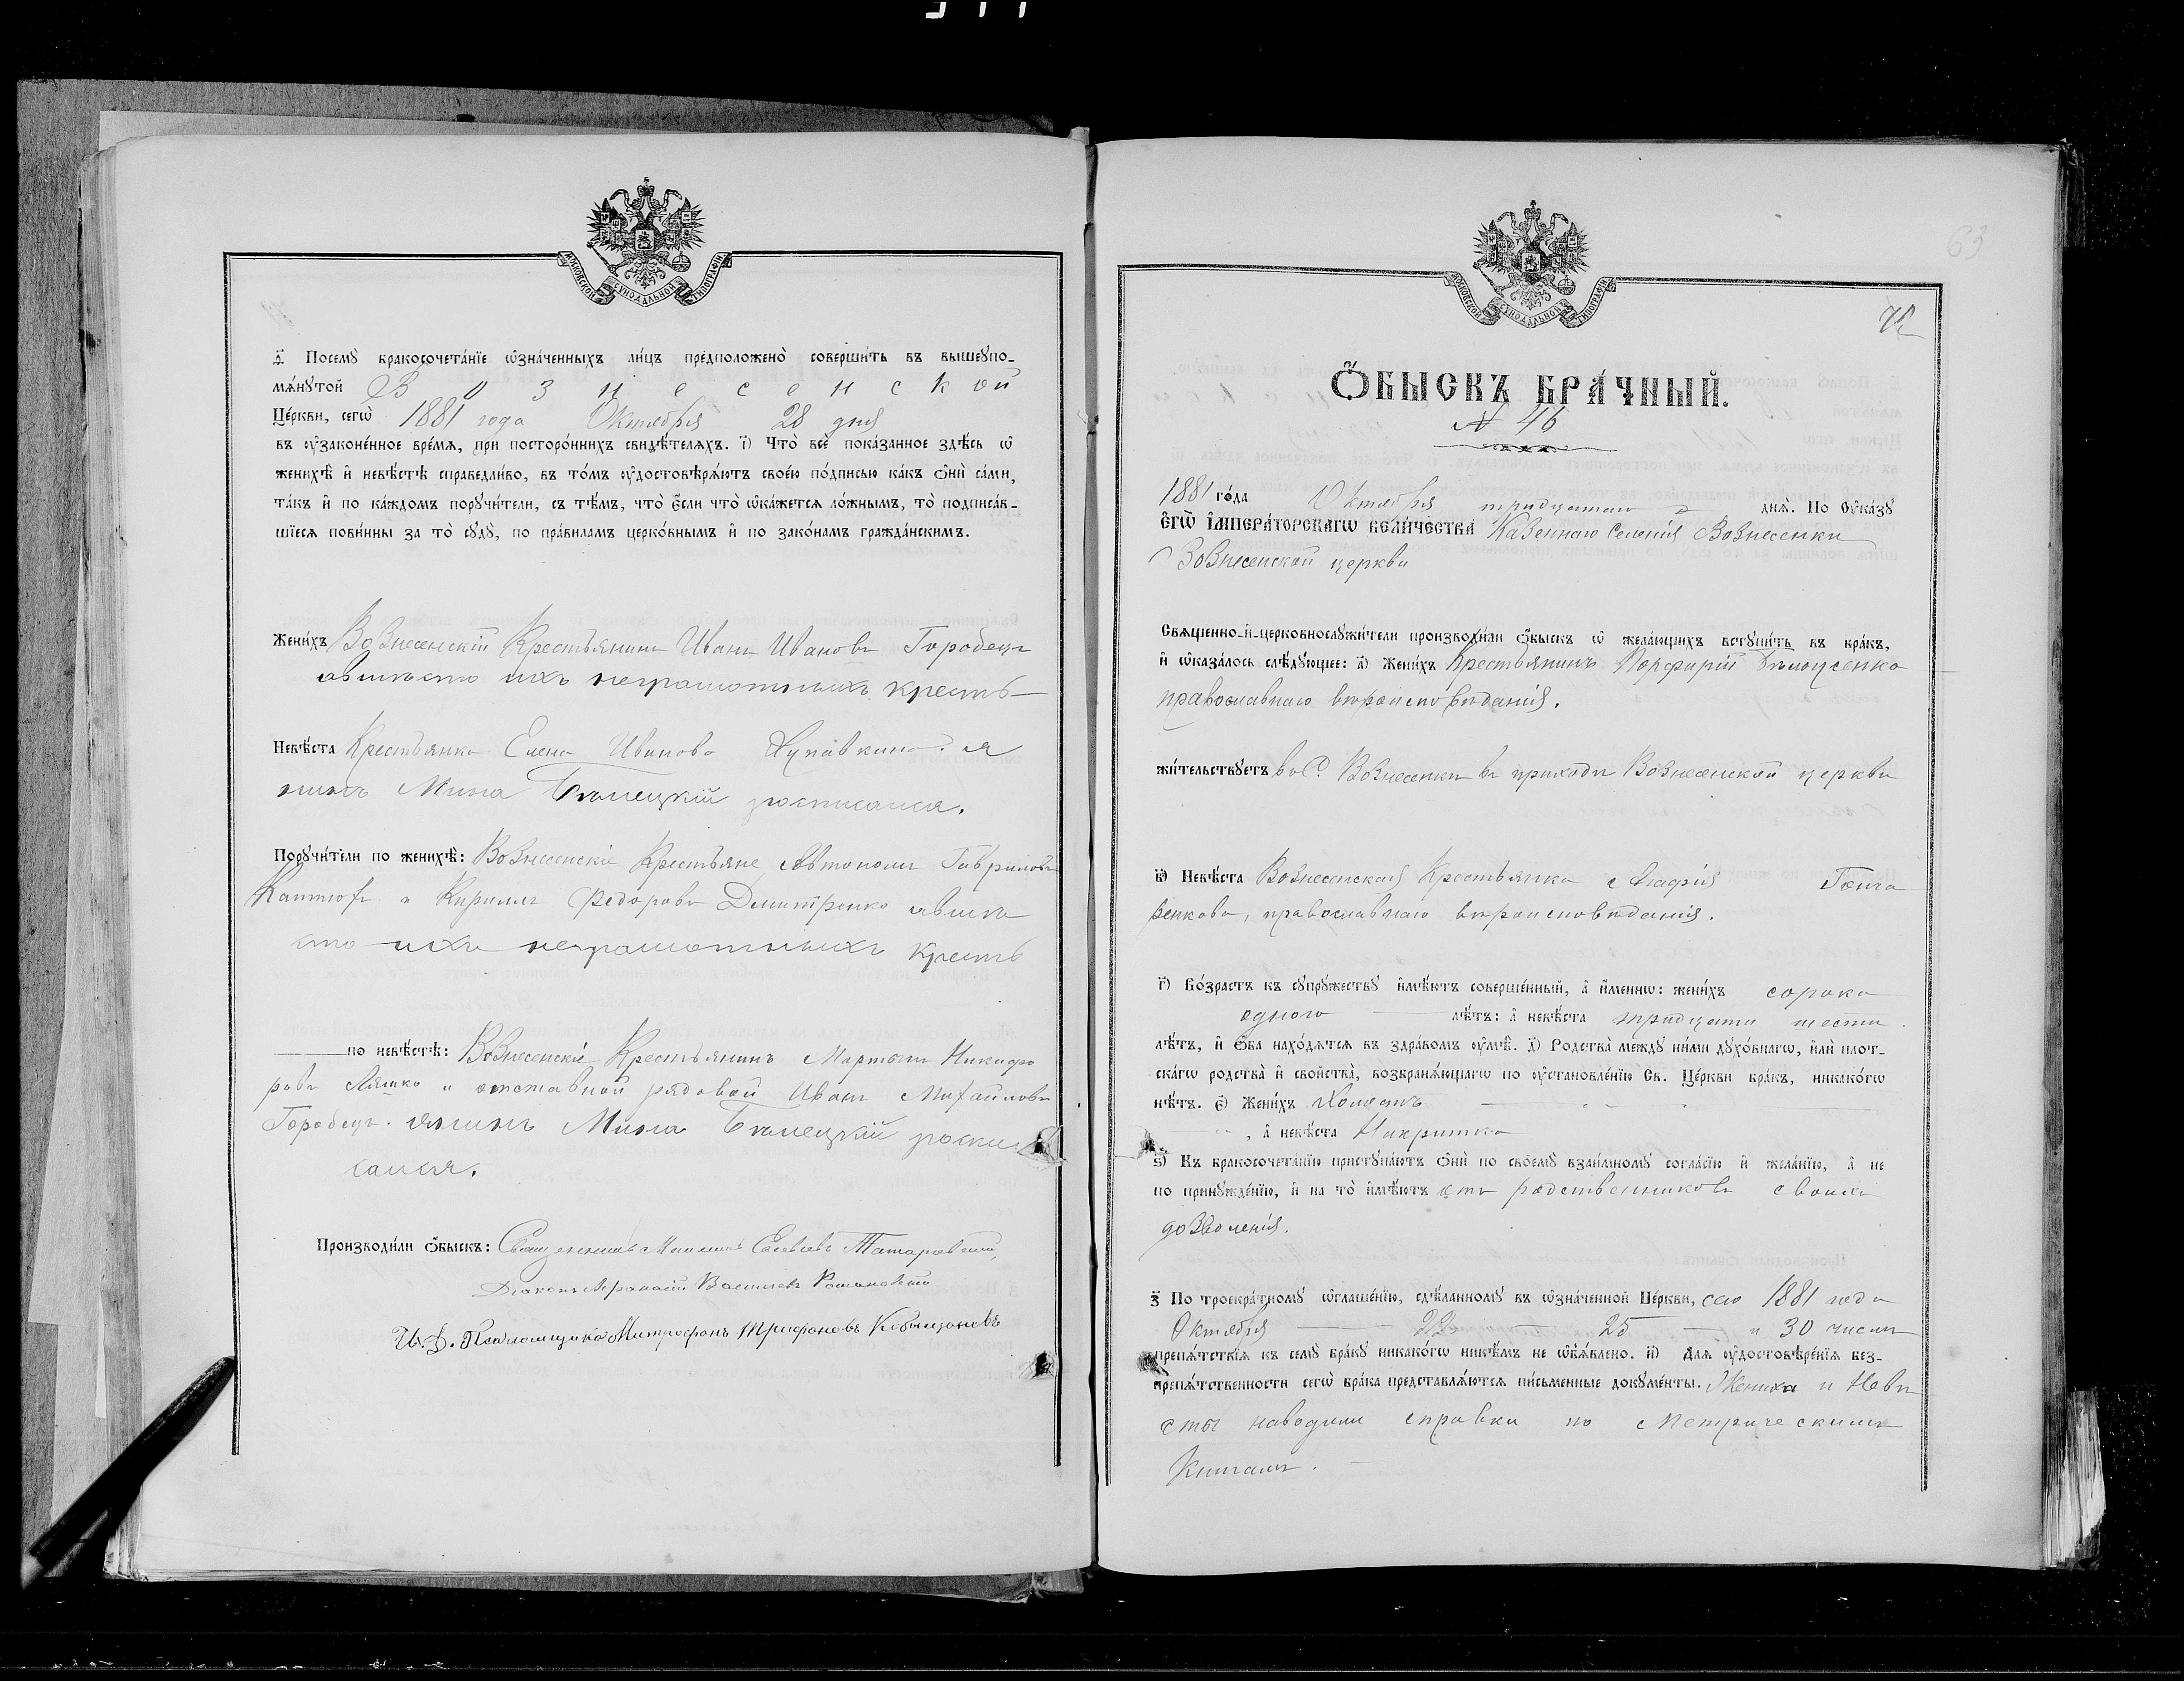 МОСКОВСКОЙ СѴНОДАЛЬНОЙ ТИПОГРАФІИ
Посемꙋ бракосочета́нїе ѡ҆зна́ченныхъ ли́цъ предположено̀ соверши́ть въ вышеꙋпо-
мѧ́нꙋтой Вознесенской
Це́ркви, сегѡ̀ 1881 года Октября 28 дня
въ ᲂу҆зако́ненное вре́мѧ, при посторо́ннихъ свидѣ́телѧхъ. і҃) Что̀ всѐ пока́занное здѣ́сь ѡ҆
женихѣ̀ и҆ невѣ́стѣ справедли́во, въ то́мъ ᲂу҆достовѣрѧ́ютъ свое́ю по́дписью ка́къ ѻ҆нѝ са́ми,
та́къ и҆ по ка́ждомъ порꙋчи́тели, съ тѣ́мъ, что̀ є҆́сли что̀ ѡ҆ка́жетсѧ ло́жнымъ, то̀ подписа́в-
шїесѧ пови́нны за то̀ сꙋдꙋ̀, по пра́виламъ церко́внымъ и҆ по зако́намъ гражда́нскимъ.
Жени́хъ Вознесенскій Крестьянинъ Иванъ Ивановъ Городецъ
авместо ихъ неграмотныхъ кресть-
Невѣ́ста Крестьянка Елена Иванова я
нинъ Мина Бѣлецкій росписался.
Порꙋчи́тели по женихѣ̀: Вознесенскіе Крестьяне Автономъ Гавриловъ
и Кирилъ Федоровъ Дмитренко авмѣ
сто ихъ неграмотныхъ кресть
по невѣ́стѣ: Вознесенскіе Крестьянинъ Мартынъ Никифо
ровъ Ляшко и отставной рядовой Иванъ Михайловъ
Городецъ. янинъ Мина Бѣлецкій роспи
сался.
Производи́ли ѻ҆́быскъ: Священникъ Татаровскій,
Діаконъ Афанасій Васильевъ
И. Д. Псаломщика Митрофанъ Трифоновъ
63
МОСКОВСКОЙ СѴНОДАЛЬНОЙ ТИПОГРАФІИ
Ѻ҆́БЫСКЪ БРА́ЧНЫЙ.
№ 46
1881 го́да Октября тридцатаго днѧ̀. По Оу҆ка́зꙋ
є҆гѡ̀ і҆мпера́торскагѡ вели́чества Казеннаго Селенія Вознесенки
Вознесенской церкви
Свѧще́нно-и҆-церковнослꙋжи́тели производи́ли ѻ҆́быскъ ѡ҆ жела́ющихъ встꙋпи́ть въ бра́къ,
и҆ ѡ҆каза́лось слѣ́дꙋющее: а҃) Жени́хъ Крестьянинъ Порфирій Бѣлоусенко
православнаго вѣроисповѣданія.
жи́тельствꙋетъ въ С. Вознесенки въ приходѣ Вознесенской церкви
в҃) Невѣ́ста Вознесенская Крестьянка Агафія Гонча
ренкова, православнаго вѣроисповѣданія.
г҃) Во́зрастъ къ сꙋпрꙋ́жествꙋ и҆мѣ́ютъ соверше́нный, а҆ и҆́меннѡ: жени́хъ сорока
одного лѣ́тъ: а҆ невѣ́ста тридцати шести
лѣ́тъ, и҆ ѻ҆́ба нахо́дѧтсѧ въ здра́вомъ ᲂу҆мѣ̀. д҃) Родства̀ междꙋ ни́ми дꙋхо́внагѡ, и҆лѝ плот-
ска́гѡ родства̀ и҆ сво́йства, возбранѧ́ющагѡ по ᲂу҆становле́нїю Св. Це́ркви бра́къ, никако́гѡ
нѣ́тъ. є҃) Жени́хъ Холостъ
, а҆ невѣ́ста
ѕ҃) Къ бракосочета́нїю пристꙋпа́ютъ ѻ҆нѝ по своемꙋ̀ взаи́мномꙋ согла́сїю и҆ жела́нїю, а҆ не
по принꙋжде́нїю, и҆ на то̀ и҆мѣ́ютъ отъ родственниковъ своихъ
дозволенія.
з҃ По троекра́тномꙋ ѡ҆глаше́нїю, сдѣ́ланномꙋ въ ѡ҆зна́ченной Це́ркви, сего 1881 года
Октября 22 25 и 30 числъ
препѧ́тствїѧ къ семꙋ̀ бра́кꙋ никако́гѡ никѣ́мъ не ѡ҆б̾ѧ́влено. и҃) Длѧ ᲂу҆достовѣре́нїѧ без-
препѧ́тственности сегѡ̀ бра́ка представлѧ́ютсѧ пи́сьменные докꙋме́нты. Жениха и Невѣ
сты наводили справки по Метрическимъ
Книгамъ.